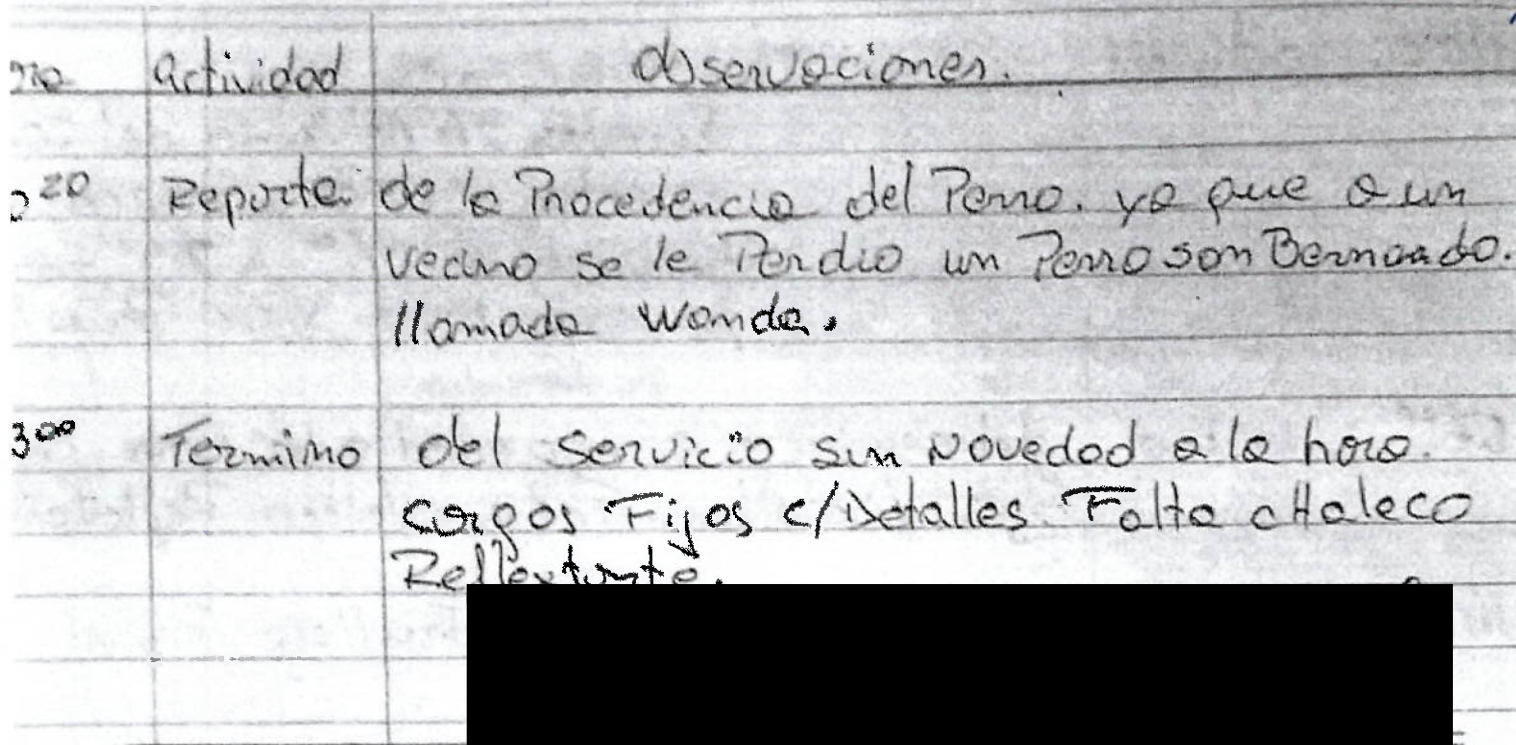 actividad observaciones.
20 Reporte de la Procedencia del Perro. ya que a un
vecino se le Perdio un Perro san Bernardo.
llamada wanda.
3 00 Termino del servicio sin Novedad a la hora.
cargos Fijos c/Detalles Falta cHaleco